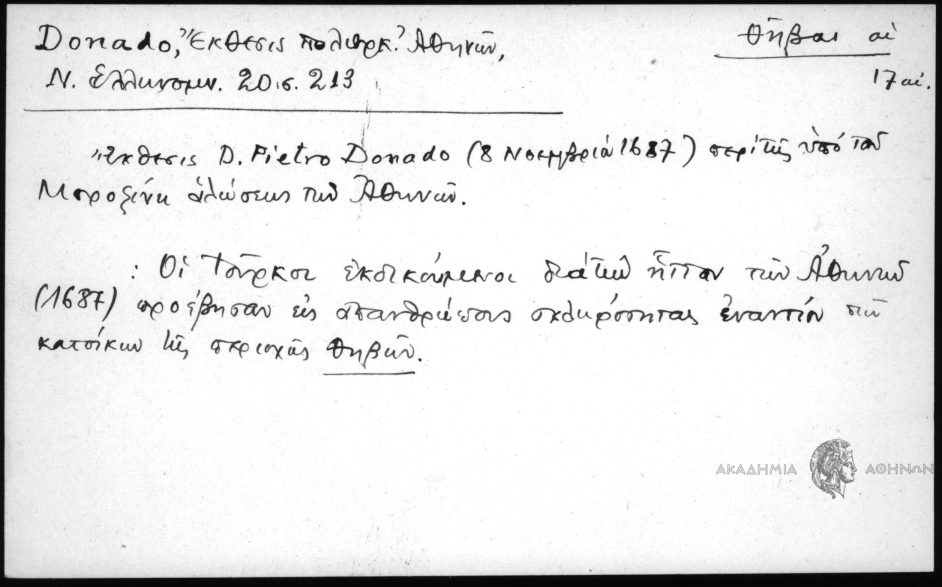 Donado, Ἔκθεσις πολιορκ. Ἀθηνῶν,
Ν. Ἑλληνομν. 20.σ. 213
Θῆβαι αἱ
17 αἰ.
Ἔκθεσις D. Pietro Donado (8 Νοεμβρίου 1687) περὶ τῆς ὑπὸ τοῦ
Μοροζίνη ἁλώσεως τῶν Ἀθηνῶν.
: Οἱ Τοῦρκοι ἐκδικούμενοι διὰ τὴν ἧτταν τῶν Ἀθηνῶν
(1687) προέβησαν εἰς ἀπανθρώπους σκληρότητας ἐναντίον τῶν
κατοίκων τῆς περιοχῆς Θηβῶν.
ΑΚΑΔΗΜΙΑ ΑΘΗΝΩΝ